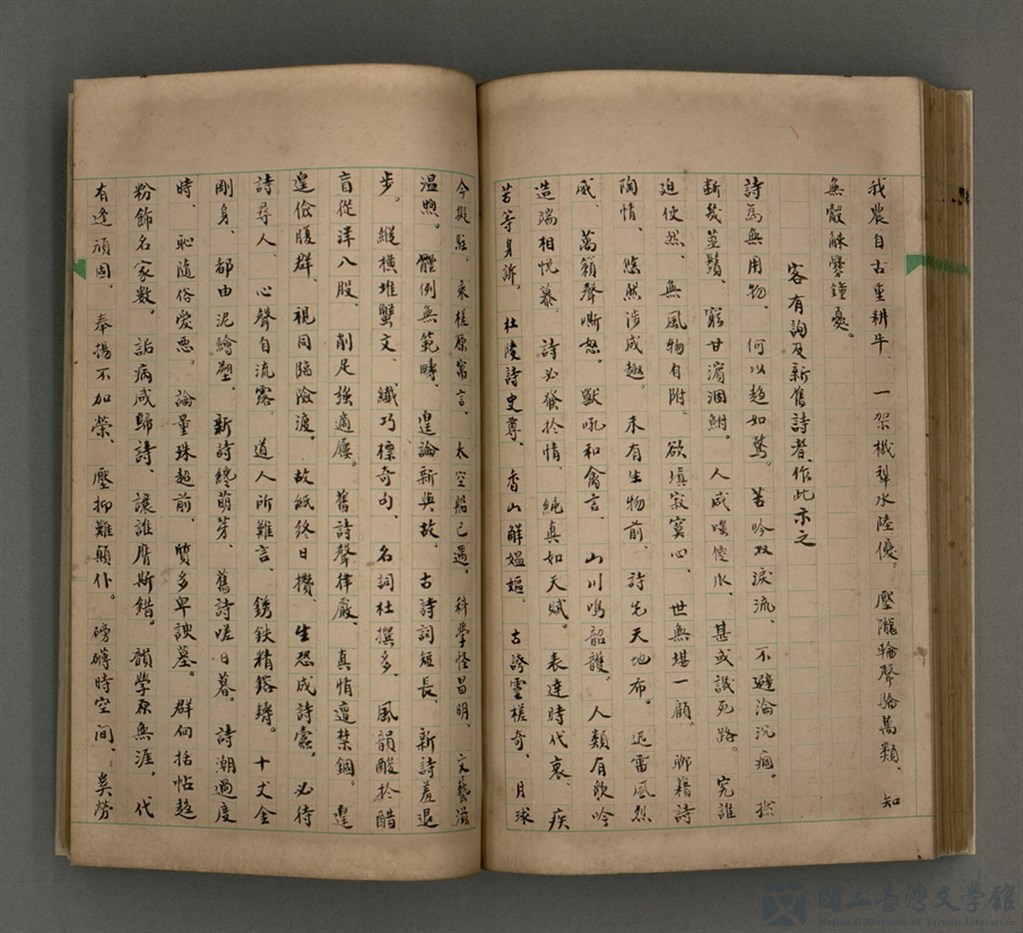 我農自古重耕牛、一架機犁水陸優。壓隴輪聲驗萬類、知
無穀觫釁鐘憂。
客有詢及新舊詩者、作此示之
詩為無用物、何以趨如鶩。苦吟双淚流、不避淪沉痼。撚
斷幾莖鬚、窮甘濡涸鮒。人咸嗤傻瓜、甚或譏死路。究誰
迫使然、無風物自附。欲填寂寞心、世無堪一顧。聊藉詩
陶情、悠然涉成趣。未有生物前、詩先天地布。迅雷風烈
威、萬籟聲嘶怒。獸吼和禽言、山川鳴韶護。人類有歌吟
造端相悅慕、詩必發於情、純真如天賦。表達時代衷、疾
苦等身訴。杜陵詩史尊、香山解媼嫗、古誇靈槎奇、月球
今擬駐、乘槎原寓言、太空船已遇、科學怪昌明、文藝滋
溫煦。體例無範疇、遑論新與故、古詩詞短長、新詩羞退
步。縱橫堆蟹文、纖巧標奇句、名詞杜撰多、風韻酸於醋
盲從洋八股、削足強適屨。舊詩聲律嚴、真情遭禁錮。遑
遑儉腹群、視同臨險渡。故紙終日攢、生恐成詩蠹。必待
詩尋人、心聲自流露。道人所難言、銹鉄精鎔鑄。十丈金
剛身、都由泥繪塑、新詩纔萌芽、舊詩嗟日暮。詩潮過度
時、恥隨俗愛惡。論量珠超前、質多卑諛墓。群何括帖趨
粉飾名家數。詬病咸歸詩、讓誰磨斯錯。韻學原無涯、代
有逢頑固。奉揚不加榮、壓抑難顛仆。磅礴時空间、奚勞
國立臺灣文學館
National Museum of Taiwan Literature